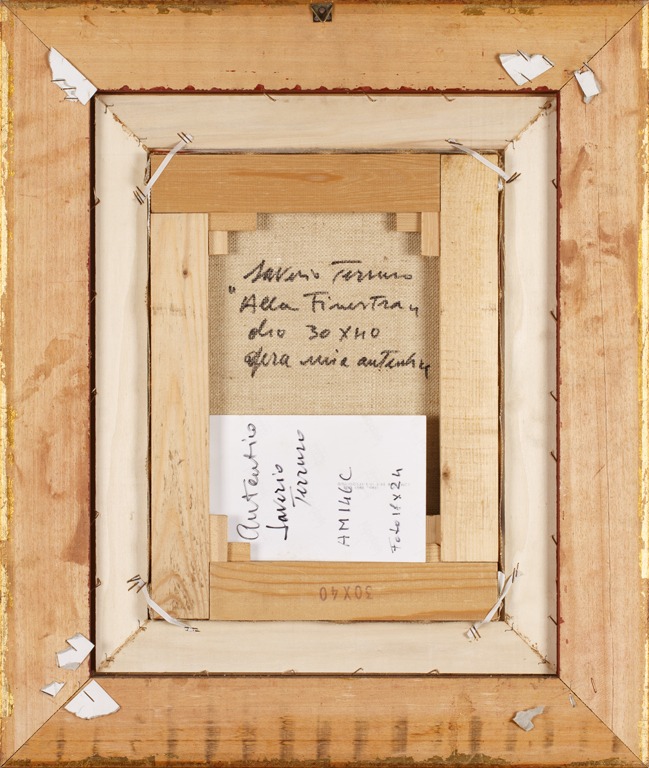 Saverio Terruso
"Alla Finestra"
olio 30 x 40
opera mia autentica
Autentico
Saverio
Terruso
AM146C
Foto 18 x 24
30X40